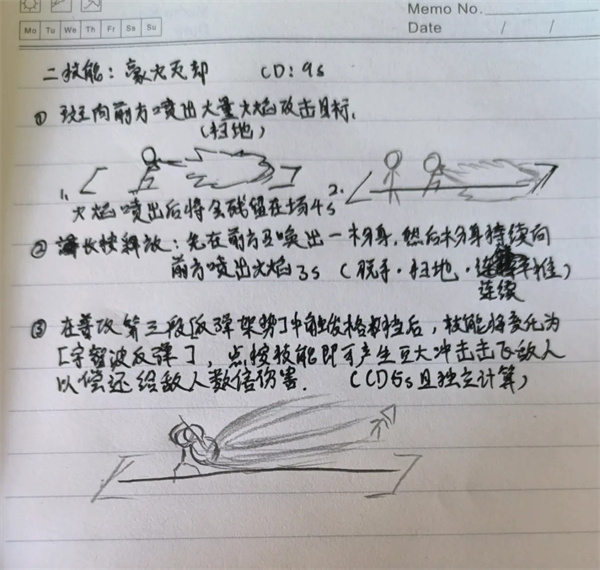 Memo No.
Mo Tu We Th Fr Sa Su
Date / /
二技能：豪火灭却 CD：9s
① 斑向前方喷出大量火焰攻击目标.
(扫地)
1. 2.
火焰喷出后将会残留在场4s
② 长按释放：先在前方召唤出一木分身，然后木分身持续向
前方喷出火焰3s（脱手·扫地·推）
连续
③ 在普攻第三段[反弹架势]中触发格挡后，技能将变化为
[宇智波反弹]，点按技能即可产生巨大冲击击飞敌人
以偿还给敌人数倍伤害. （CD5s且独立计算）